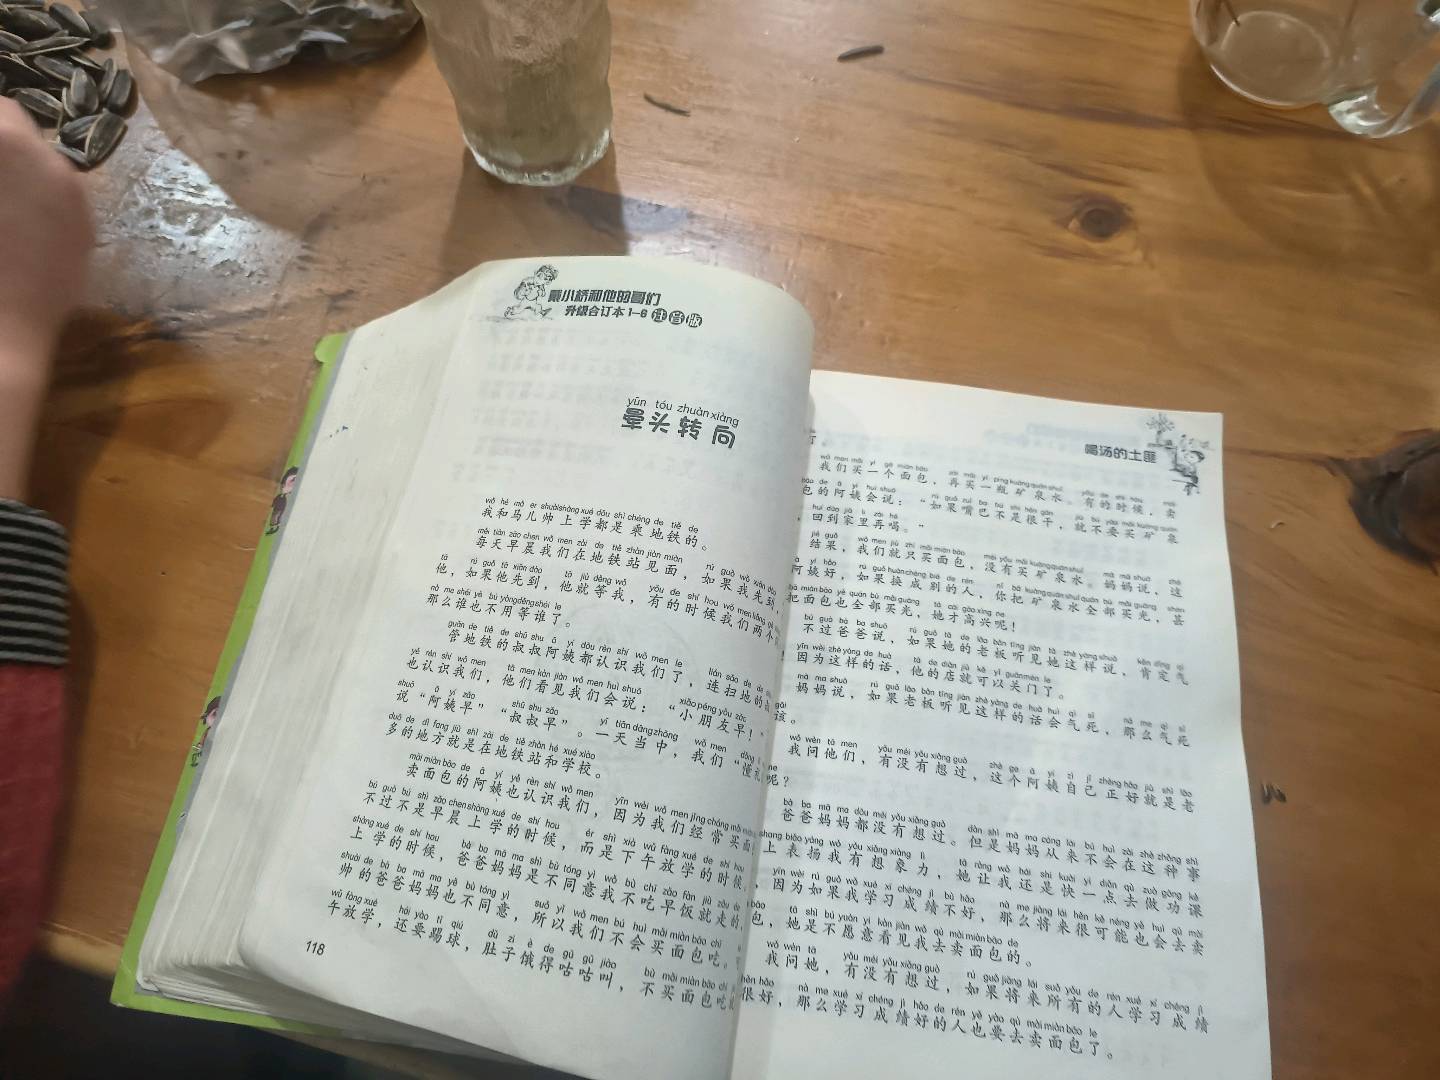 戴小桥和他的哥们
升级合订本1-6 注音版
yūn tóu zhuàn xiàng
晕头转向
我和马儿帅上学都是乘地铁的。
每天早晨我们在地铁站见面，如果我先到，
他，如果他先到，他就等我，有的时候我们两个
那么谁也不用等谁了。
管地铁的叔叔阿姨都认识我们了，连扫地的
也认识我们，他们看见我们会说：“小朋友早！”
说“阿姨早”“叔叔早”。一天当中，我们“懂礼
多的地方就是在地铁站和学校。
卖面包的阿姨也认识我们，因为我们经常买面
不过不是早晨上学的时候，而是下午放学的时候，
上学的时候，爸爸妈妈是不同意我不吃早饭就走的，
帅的爸爸妈妈也不同意，所以我们不会买面包吃。
午放学，还要踢球，肚子饿得咕咕叫，不买面包吃
118
喝汤的土匪
我们买一个面包，再买一瓶矿泉水。有的时候，卖
包的阿姨会说：“如果嘴巴不是很干，就不要买矿泉
，回到家里再喝。”
结果，我们就只买面包，没有买矿泉水。妈妈说，这
阿姨好，如果换成别的人，你把矿泉水全部买光，甚
把面包也全部买光，她才高兴呢！
不过爸爸说，如果她的老板听见她这样说，肯定气
因为这样的话，他的店就可以关门了。
妈妈说，如果老板听见这样的话会气死，那么气死
该。
我问他们，有没有想过，这个阿姨自己正好就是老
呢？
爸爸妈妈都没有想过。但是妈妈从来不会在这种事
上表扬我有想象力，她让我还是快一点去做功课
，因为如果我学习成绩不好，那么将来很可能也会去卖
包，她是不愿意看见我去卖面包的。
我问她，有没有想过，如果将来所有的人学习成绩
很好，那么学习成绩好的人也要去卖面包了。